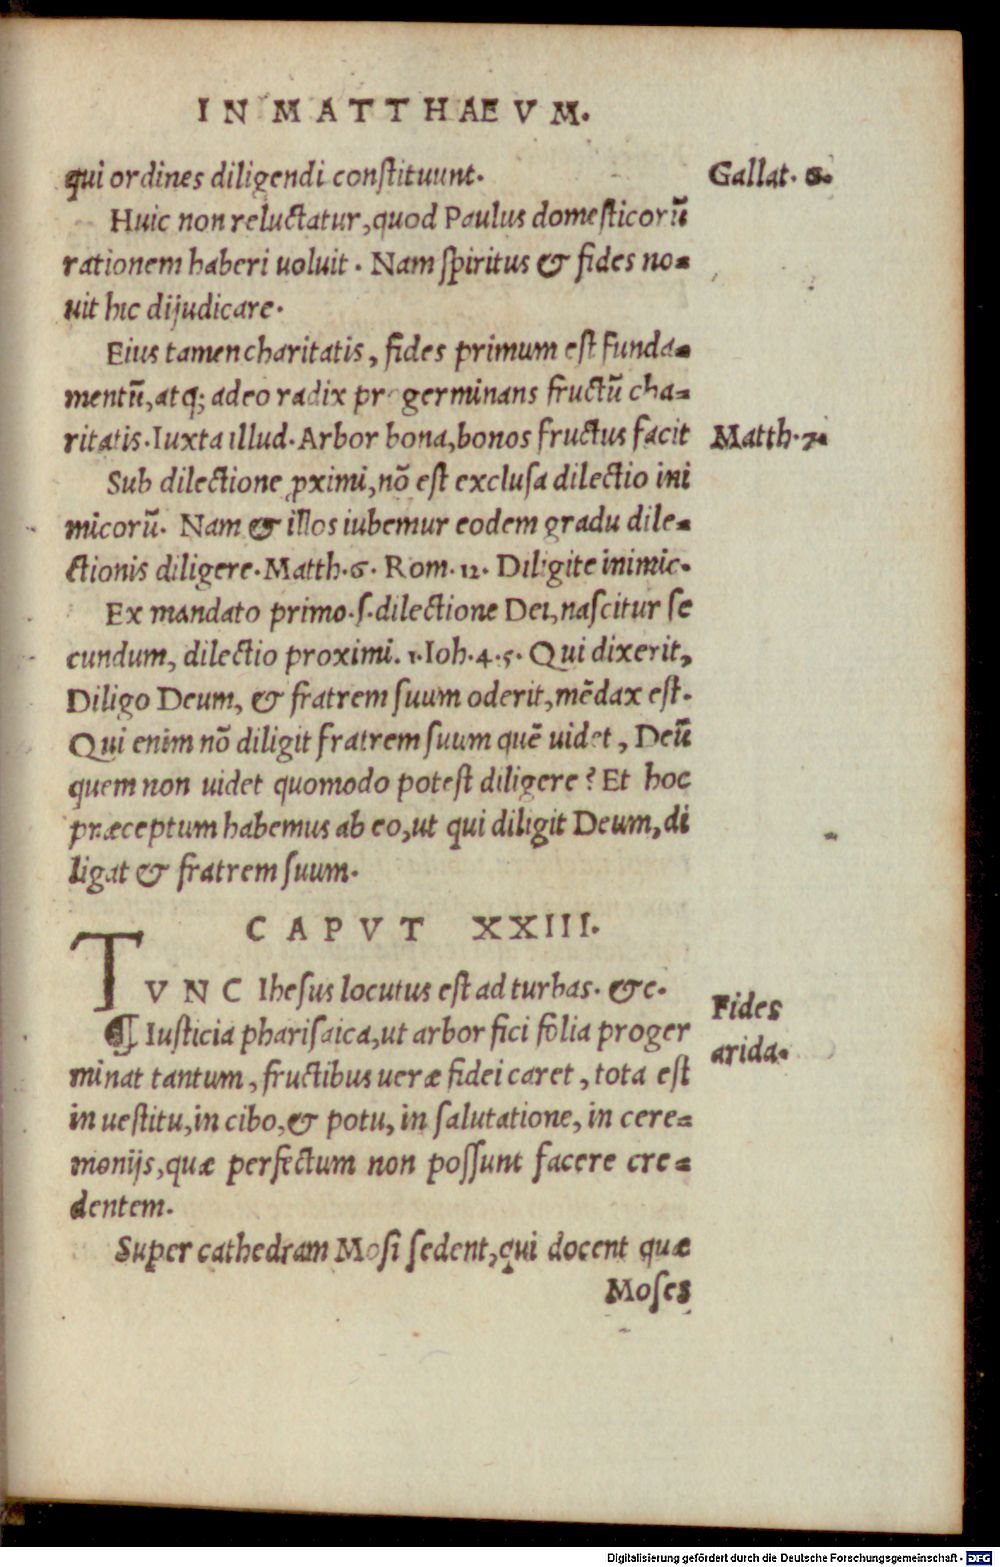 IN MATTHAEVM.
qui ordines diligendi constituunt.
Gallat. 6.
Huic non reluctatur, quod Paulus domesticorũ
rationem haberi uoluit. Nam spiritus & fides no-
uit hic dijudicare.
Eius tamen charitatis, fides primum est funda-
mentũ, atq; adeo radix progerminans fructũ cha-
ritatis. Iuxta illud. Arbor bona, bonos fructus facit
Matth. 7.
Sub dilectione ꝓximi, nõ est exclusa dilectio ini
micorũ. Nam & illos iubemur eodem gradu dile-
ctionis diligere. Matth. 6. Rom. 12. Diligite inimic.
Ex mandato primo .s. dilectione Dei, nascitur se
cundum, dilectio proximi. 1. Ioh. 4. 5. Qui dixerit,
Diligo Deum, & fratrem suum oderit, mẽdax est.
Qui enim nõ diligit fratrem suum quẽ uidet, Deũ
quem non uidet quomodo potest diligere? Et hoc
præceptum habemus ab eo, ut qui diligit Deum, di
ligat & fratrem suum.
CAPVT XXIII.
TVNC Ihesus locutus est ad turbas. &c.
¶ Iusticia pharisaica, ut arbor fici folia proger
Fides
arida.
minat tantum, fructibus ueræ fidei caret, tota est
in uestitu, in cibo, & potu, in salutatione, in cere-
monijs, quæ perfectum non possunt facere cre-
dentem.
Super cathedram Mosi sedent, qui docent quæ
Moses
Digitalisierung gefördert durch die Deutsche Forschungsgemeinschaft - DFG